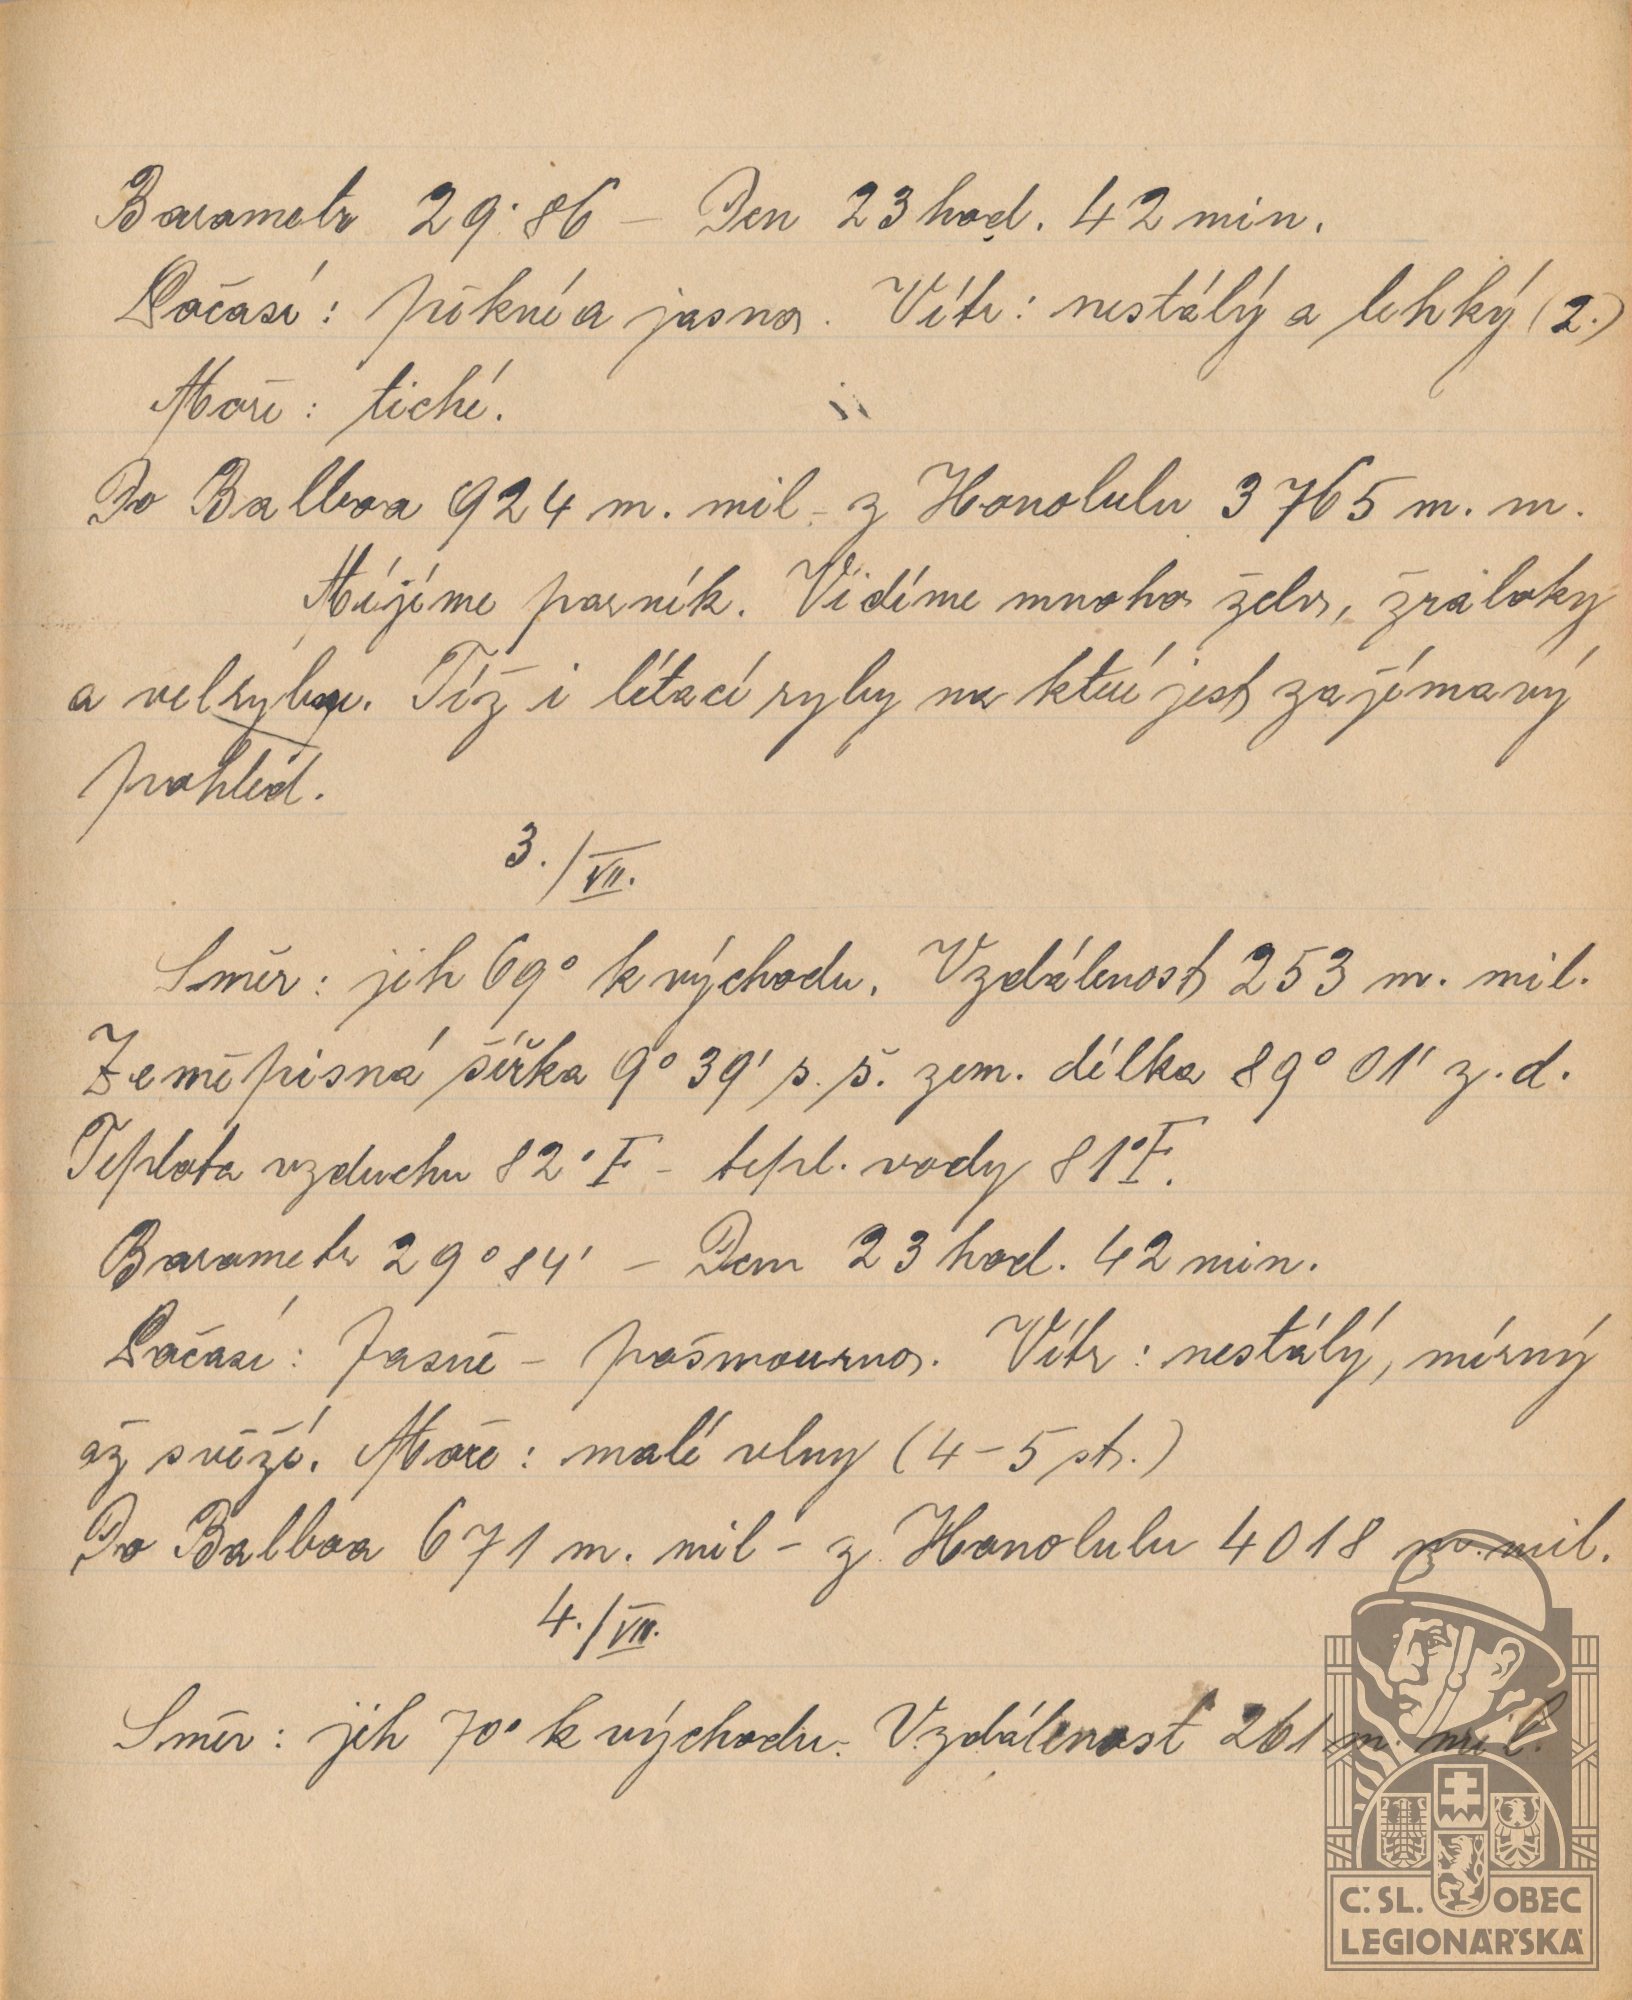 Barometr 29·86 – Den 23 hod. 42 min.
Počasí: pěkné a jasno. Vítr: nestálý a lehký (2.)
Moře: tiché.
Do Balboa 924 m. mil – z Honolulu 3765 m. m.
Míjíme parník. Vidíme mnoho želv, žraloky
a velrybu. Též i lítací ryby na které jest zajímavý
pohled.
3./VII.
Směr: jih 69° k východu. Vzdálenost 253 m. mil.
Zeměpisná šířka 9° 39' s. š. zem. délka 89° 01' z. d.
Teplota vzduchu 82°F – tepl. vody 81°F.
Barometr 29°84' – Den 23 hod. 42 min.
Počasí: Jasně – pošmourno. Vítr: nestálý, mírný
až svěží. Moře: malé vlny (4–5 st.)
Do Balboa 671 m. mil – z Honolulu 4018 m. mil.
4./VII.
Směr: jih 70° k východu. Vzdálenost 261 m. mil.
Č.SL. OBEC
LEGIONÁŘSKÁ